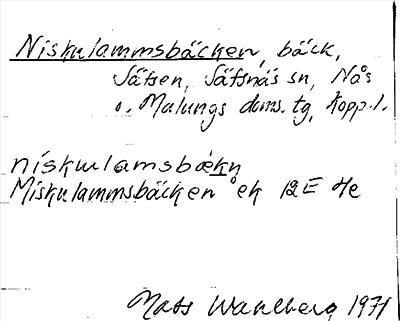 Niskulammsbäcken, bäck,
Sätsen, Säfsnäs sn, Nås
o. Malungs doms. tg, Kopp. l.
nískωlamsbækn̥
Miskulammsbäcken ek 12E 4e
Mats Wahlberg 1971